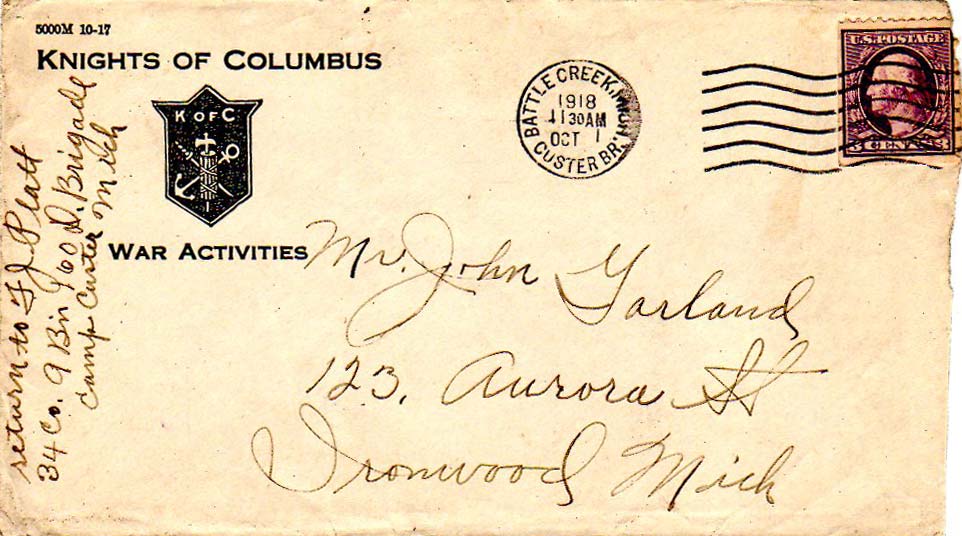 5000M 10-17
KNIGHTS OF COLUMBUS
K OF C
WAR ACTIVITIES
BATTLE CREEK, MICH
1918
11 30 AM
OCT 1
CUSTER BR.
U.S. POSTAGE
3 CENTS 3
return to F J. Platt
34 Co. 9 Bn 160 D. Brigade
Camp Custer Mich
Mr. John Garland
123, Aurora St
Ironwood Mich